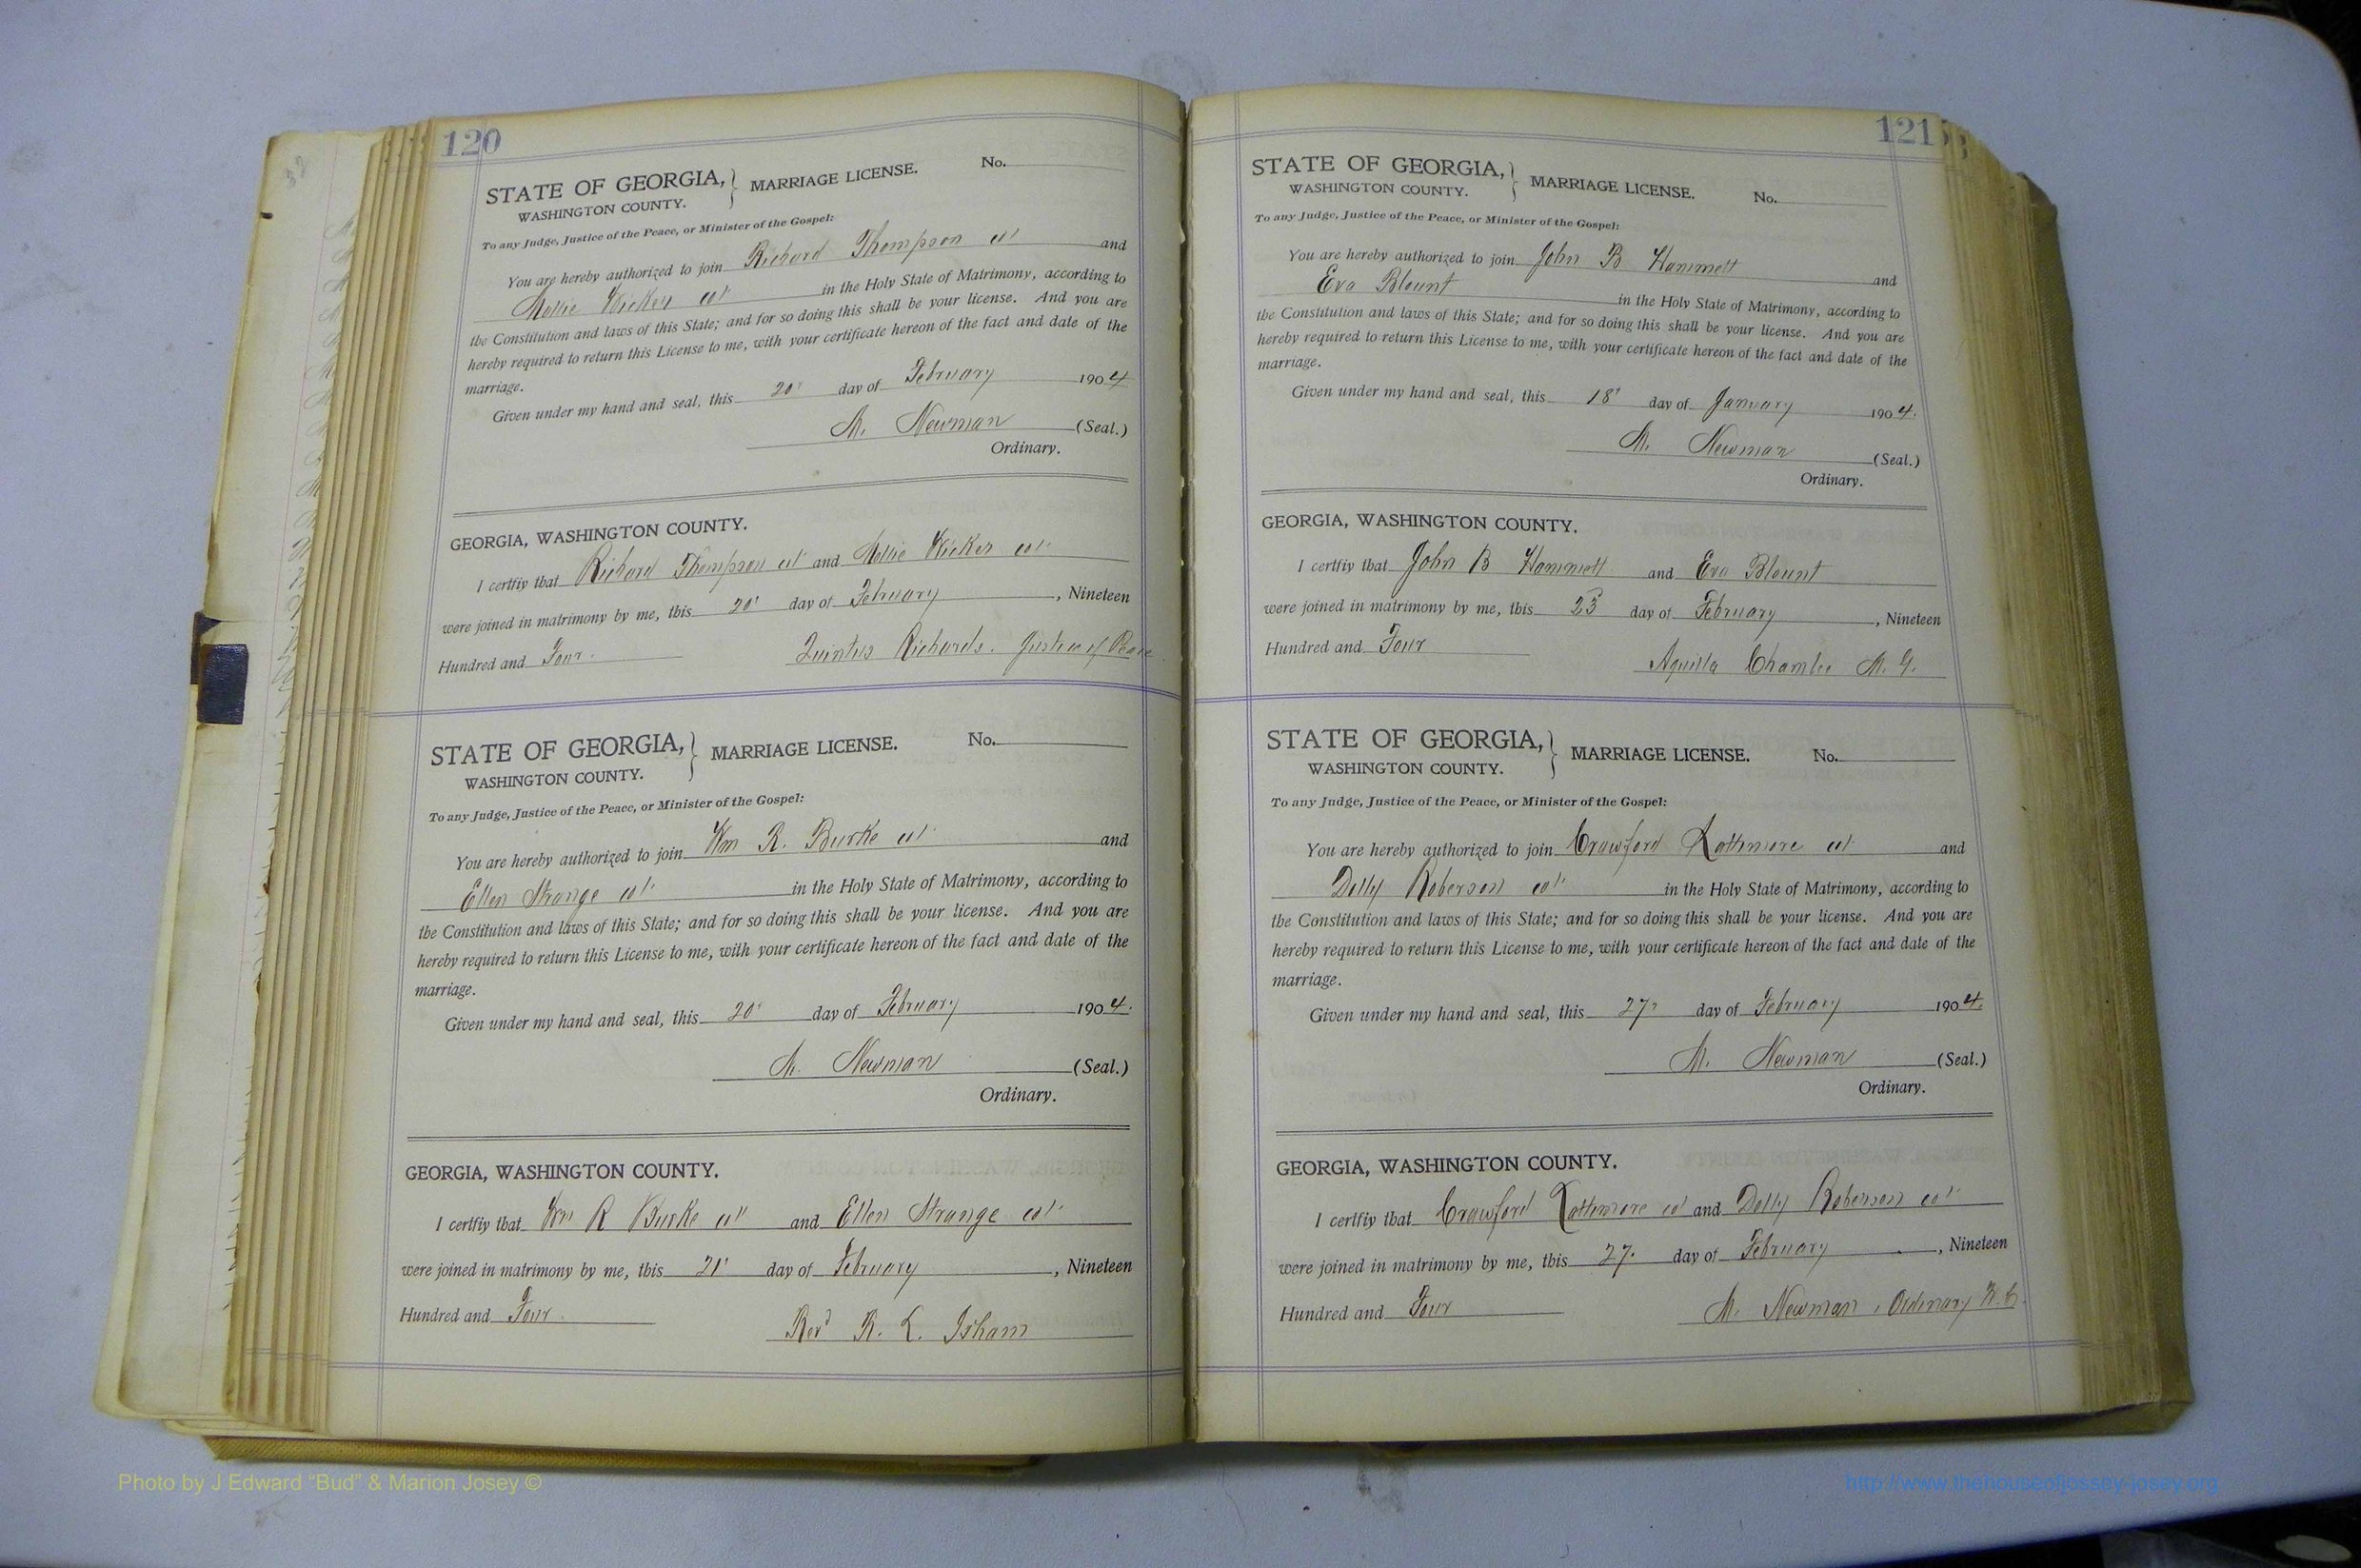 120
STATE OF GEORGIA, } MARRIAGE LICENSE. No.
WASHINGTON COUNTY.
To any Judge, Justice of the Peace, or Minister of the Gospel:
You are hereby authorized to join Richard Thompson col and
Mollie Wicker col in the Holy State of Matrimony, according to
the Constitution and laws of this State; and for so doing this shall be your license. And you are
hereby required to return this License to me, with your certificate hereon of the fact and date of the
marriage.
Given under my hand and seal, this 20' day of February 1904
M. Newman (Seal.)
Ordinary.
GEORGIA, WASHINGTON COUNTY.
I certfiy that Richard Thompson col and Mollie Wicker col
were joined in matrimony by me, this 20' day of February, Nineteen
Hundred and Four. Quintus Richards. Justice of Peace
STATE OF GEORGIA, } MARRIAGE LICENSE. No.
WASHINGTON COUNTY.
To any Judge, Justice of the Peace, or Minister of the Gospel:
You are hereby authorized to join Wm R. Burke col and
Ellen Strange col in the Holy State of Matrimony, according to
the Constitution and laws of this State; and for so doing this shall be your license. And you are
hereby required to return this License to me, with your certificate hereon of the fact and date of the
marriage.
Given under my hand and seal, this 20' day of February 1904.
M. Newman (Seal.)
Ordinary.
GEORGIA, WASHINGTON COUNTY.
I certfiy that Wm R Burke col and Ellen Strange col
were joined in matrimony by me, this 21' day of February, Nineteen
Hundred and Four. Revd R. L. Isham
121
STATE OF GEORGIA, } MARRIAGE LICENSE. No.
WASHINGTON COUNTY.
To any Judge, Justice of the Peace, or Minister of the Gospel:
You are hereby authorized to join John B Hammett and
Eva Blount in the Holy State of Matrimony, according to
the Constitution and laws of this State; and for so doing this shall be your license. And you are
hereby required to return this License to me, with your certificate hereon of the fact and date of the
marriage.
Given under my hand and seal, this 18' day of January 1904.
M. Newman (Seal.)
Ordinary.
GEORGIA, WASHINGTON COUNTY.
I certfiy that John B Hammett and Eva Blount
were joined in matrimony by me, this 23 day of February, Nineteen
Hundred and Four Aquilla Chamlee M. G.
STATE OF GEORGIA, } MARRIAGE LICENSE. No.
WASHINGTON COUNTY.
To any Judge, Justice of the Peace, or Minister of the Gospel:
You are hereby authorized to join Crawford Lattimore col and
Dolly Roberson col in the Holy State of Matrimony, according to
the Constitution and laws of this State; and for so doing this shall be your license. And you are
hereby required to return this License to me, with your certificate hereon of the fact and date of the
marriage.
Given under my hand and seal, this 27' day of February 1904.
M. Newman (Seal.)
Ordinary.
GEORGIA, WASHINGTON COUNTY.
I certfiy that Crawford Lattimore col and Dolly Roberson col
were joined in matrimony by me, this 27. day of February, Nineteen
Hundred and Four M. Newman, Ordinary W.C.
Photo by J Edward “Bud” & Marion Josey ©
http://www.thehouseofjossey-josey.org